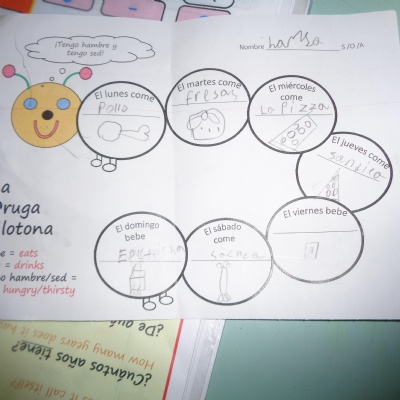 ¡Tengo hambre y
tengo sed!
Nombre hamza S/O/A
El lunes come
Pollo
El martes come
fresas
El miércoles
come
La Pizza
El jueves come
El viernes bebe
El sábado
come
El domingo
bebe
a
ruga
lotona
e = eats
= drinks
o hambre/sed =
hungry/thirsty
¿De qué
How many years does it ha
¿Cuántos años tiene?
it call itself?